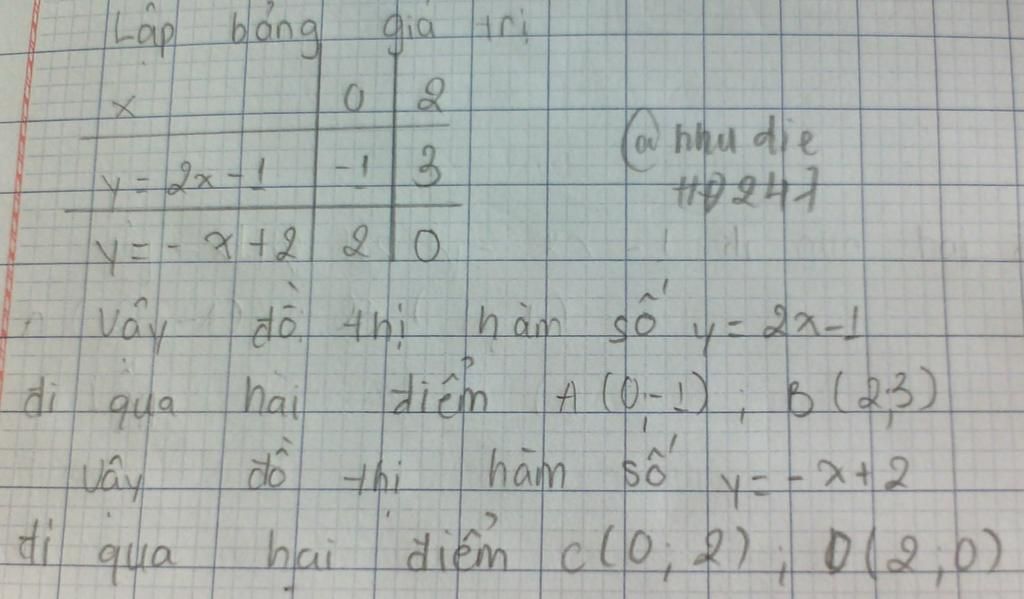 Lập bảng giá trị
x 0 2
y = 2x - 1 -1 3
y = - x + 2 2 0
@ nhu die
Vậy đồ thị hàm số y = 2x - 1
đi qua hai điểm A (0;-1) ; B (2;3)
Vậy đồ thị hàm số y = - x + 2
đi qua hai điểm C (0; 2) ; D (2; 0)